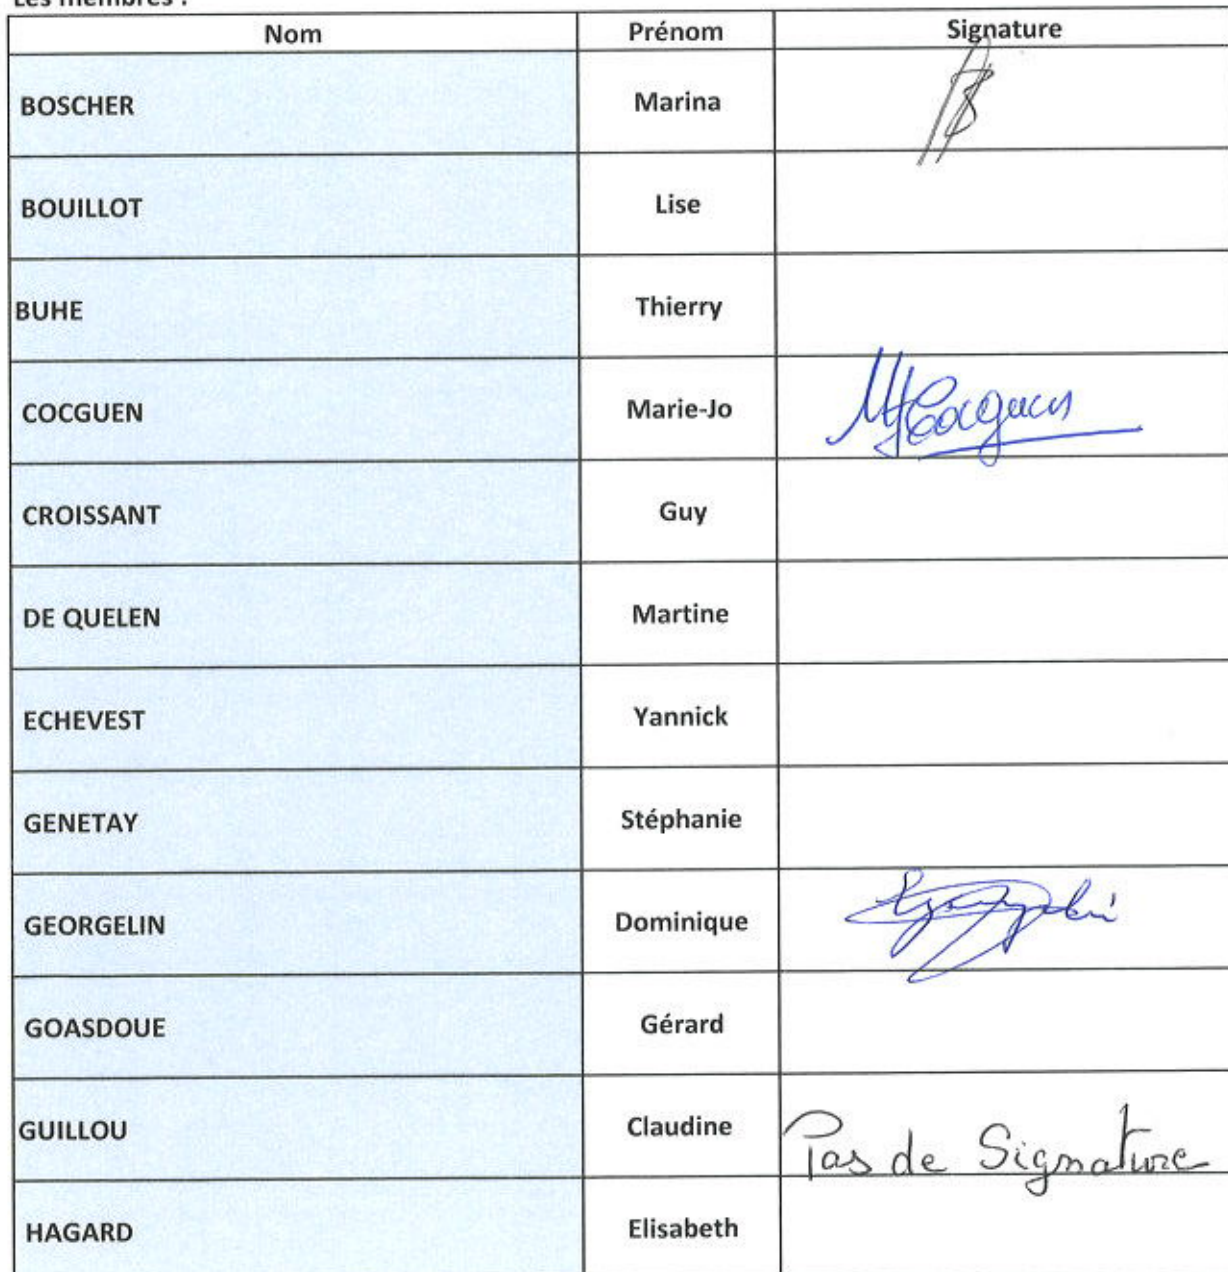 Les membres :
Nom Prénom Signature
BOSCHER Marina
BOUILLOT Lise
BUHE Thierry
COCGUEN Marie-Jo MJCocguen
CROISSANT Guy
DE QUELEN Martine
ECHEVEST Yannick
GENETAY Stéphanie
GEORGELIN Dominique
GOASDOUE Gérard
GUILLOU Claudine Pas de Signature
HAGARD Elisabeth